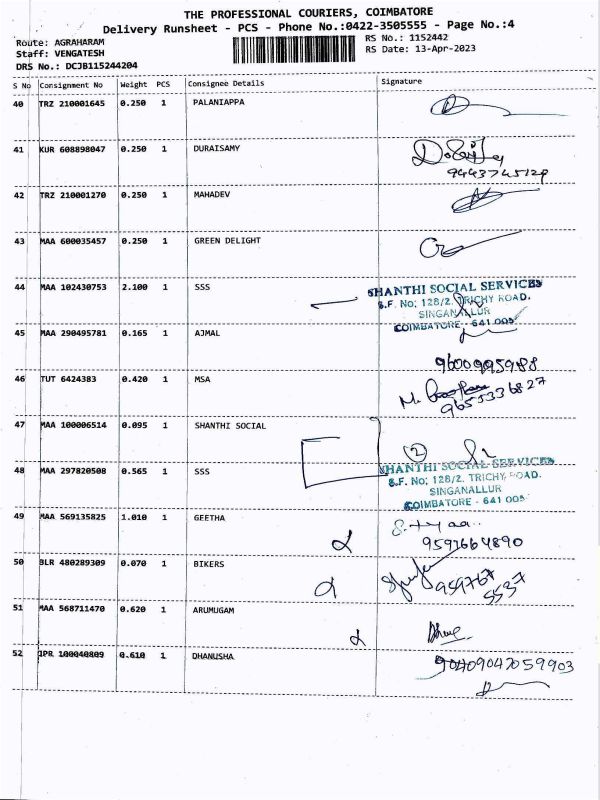 THE PROFESSIONAL COURIERS, COIMBATORE
Delivery Runsheet - PCS - Phone No.:0422-3505555 - Page No.:4
Route: AGRAHARAM RS No.: 1152442
Staff: VENGATESH RS Date: 13-Apr-2023
DRS No.: DCJB115244204
S No Consignment No Weight PCS Consignee Details Signature
40 TRZ 210001645 0.250 1 PALANIAPPA
41 KUR 608898047 0.250 1 DURAISAMY
9443745129
42 TRZ 210001270 0.250 1 MAHADEV
43 MAA 600035457 0.250 1 GREEN DELIGHT
44 MAA 102430753 2.100 1 SSS
SHANTHI SOCIAL SERVICES
S.F. No: 128/2, TRICHY ROAD.
SINGANALLUR
COIMBATORE - 641 005
45 MAA 290495781 0.165 1 AJMAL
9600995988
46 TUT 6424383 0.420 1 MSA
9655336827
47 MAA 100006514 0.095 1 SHANTHI SOCIAL
2
48 MAA 297820508 0.565 1 SSS
SHANTHI SOCIAL SERVICES
S.F. No: 128/2, TRICHY ROAD.
SINGANALLUR
COIMBATORE - 641 005
49 MAA 569135825 1.010 1 GEETHA
9591664890
50 BLR 480289309 0.070 1 BIKERS
959767
5537
51 MAA 568711470 0.620 1 ARUMUGAM
52 JPR 100040809 0.610 1 DHANUSHA
9047059903